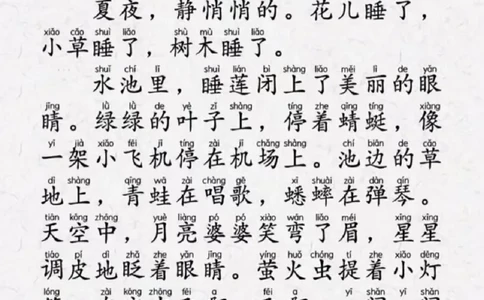 夏夜，静悄悄的。花儿睡了，
xiǎo cǎo shuì liǎo shù mù shuì liǎo
小草睡了，树木睡了。
shuǐ chí lǐ shuì lián bì shàng liǎo měi lì de yǎn
水池里，睡莲闭上了美丽的眼
jīng lǜ lǜ de yè zǐ shàng tíng zhe qīng tíng xiàng
睛。绿绿的叶子上，停着蜻蜓，像
yī jià xiǎo fēi jī tíng zài jī chǎng shàng chí biān de cǎo
一架小飞机停在机场上。池边的草
dì shàng qīng wā zài chàng gē xī shuài zài dàn qín
地上，青蛙在唱歌，蟋蟀在弹琴。
tiān kōng zhōng yuè liàng pó pó xiào wān liǎo méi xīng xīng
天空中，月亮婆婆笑弯了眉，星星
tiáo pí dì zhǎ zhe yǎn jīng yíng huǒ chóng tí zhe xiǎo dēng
调皮地眨着眼睛。萤火虫提着小灯
lóng zài